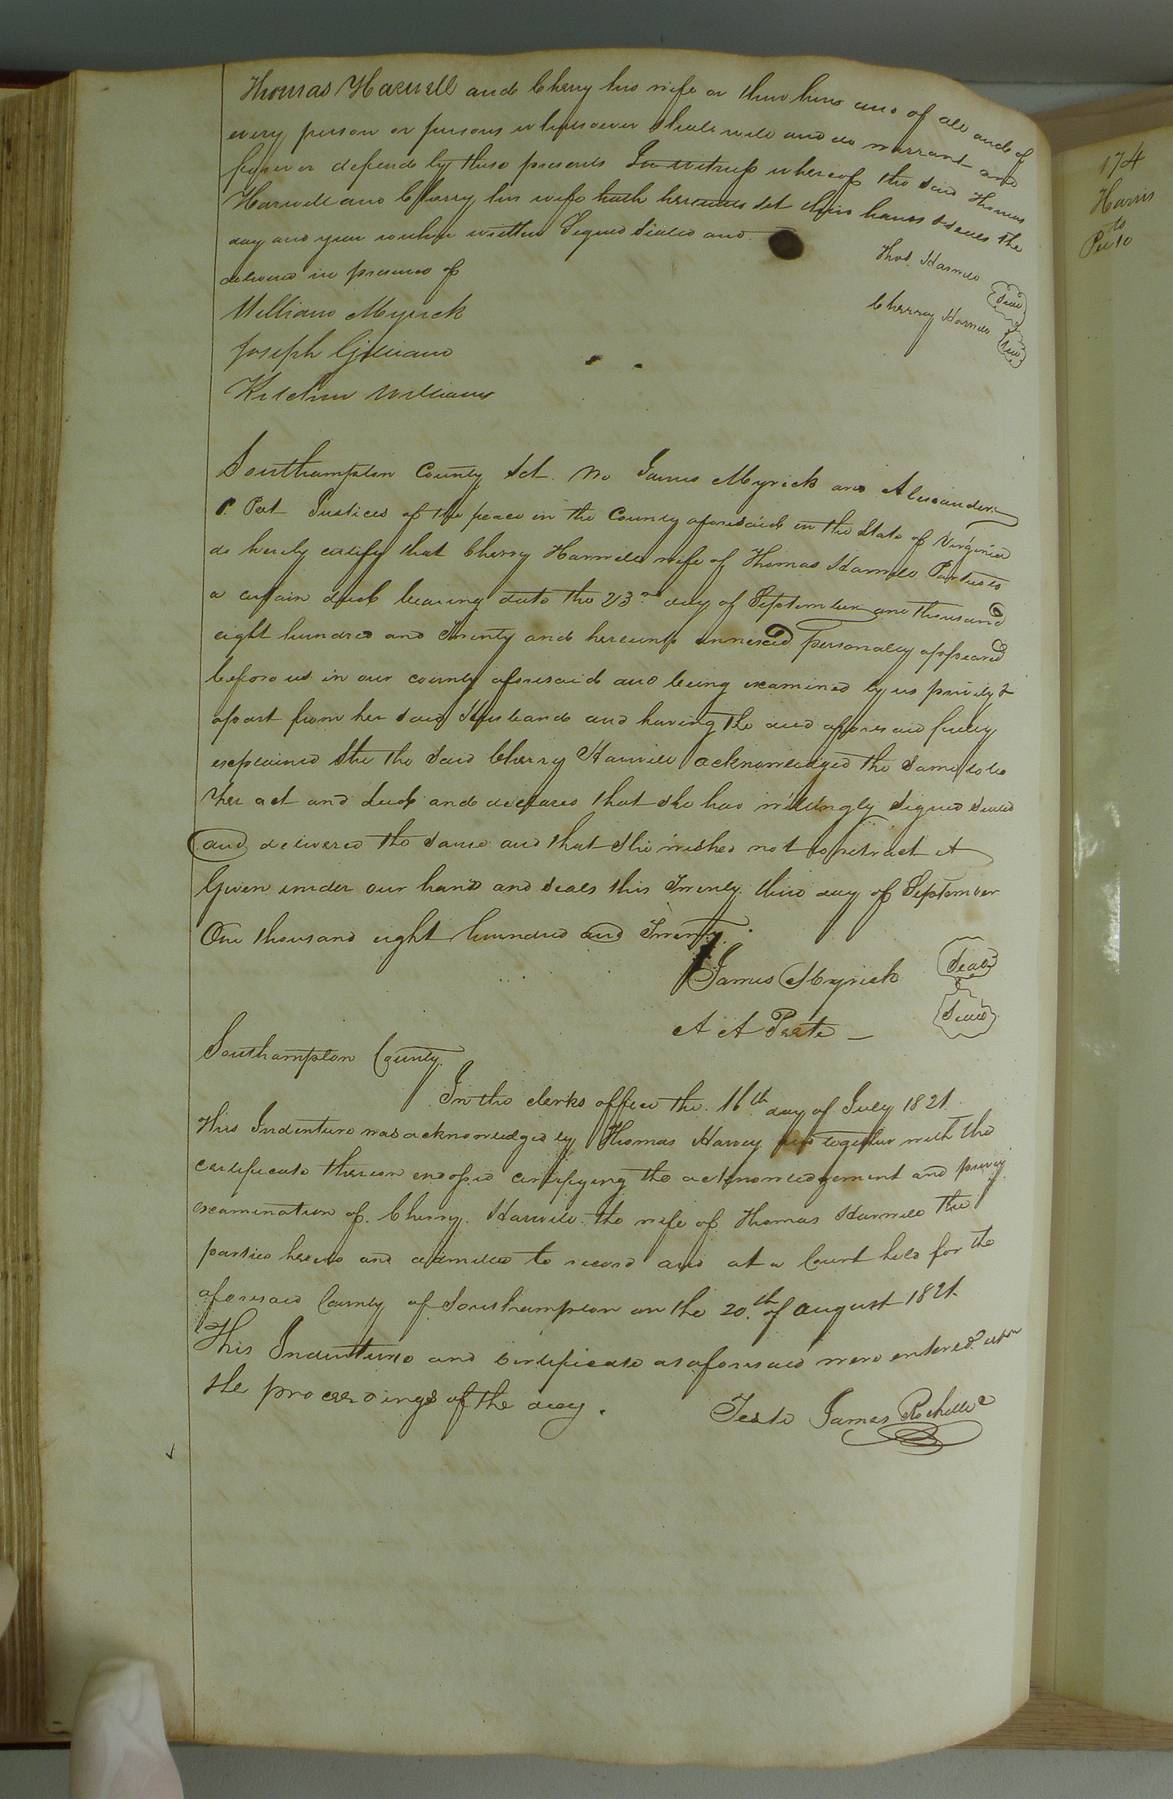 Thomas Harwell and Cherry his wife or thier heirs and of all and of
every person or persons whatsoever shall will and do warrant and
forever defend by these presents In witness whereof the said Thomas
Harwell and Cherry his wife hath hereunto set thier hands & seals the
day and year within written Signed Sealed and
delivered in presence of
Thos. Harwell Seal
William Myrick
Cherrey Harwell Seal
Joseph Gilliam
William
Southampton County Sct. We James Myrick and Alexander
Peet Justices of the peace in the County aforesaid in the State of Virginia
do hereby certify that Cherry Harwell wife of Thomas Harwell Parties to
a certain deed bearing date the 23rd day of September one thousand
eight hundred and Twenty and hereunto annexed personally appeared
before us in our county aforesaid and being examined by us privily &
apart from her said Husband and having the deed aforesaid fully
explained She the said Cherry Harwell acknowledged the same to be
her act and deed and declared that she had willingly signed sealed
and delivered the same and that she wished not to retract it
Given under our hand and seals this Twenty third day of September
One thousand eight hundred and Twenty.
James Myrick Seal
A A Peete Seal
Southampton County
In the clerks office the 16th day of July 1821
This Indenture was acknowledged by Thomas Harvey and together with the
certificate thereon endorsed certifying the acknowledgement and privy
examination of Cherry. Harwell the wife of Thomas Harwell the
parties hereto and admitted to record and at a Court held for the
aforesaid County of Southampton on the 20.th of August 1821
This Indenture and certificate as aforesaid were entered upon
the proceedings of the day.
Teste James Rochelle
174
Harris
to